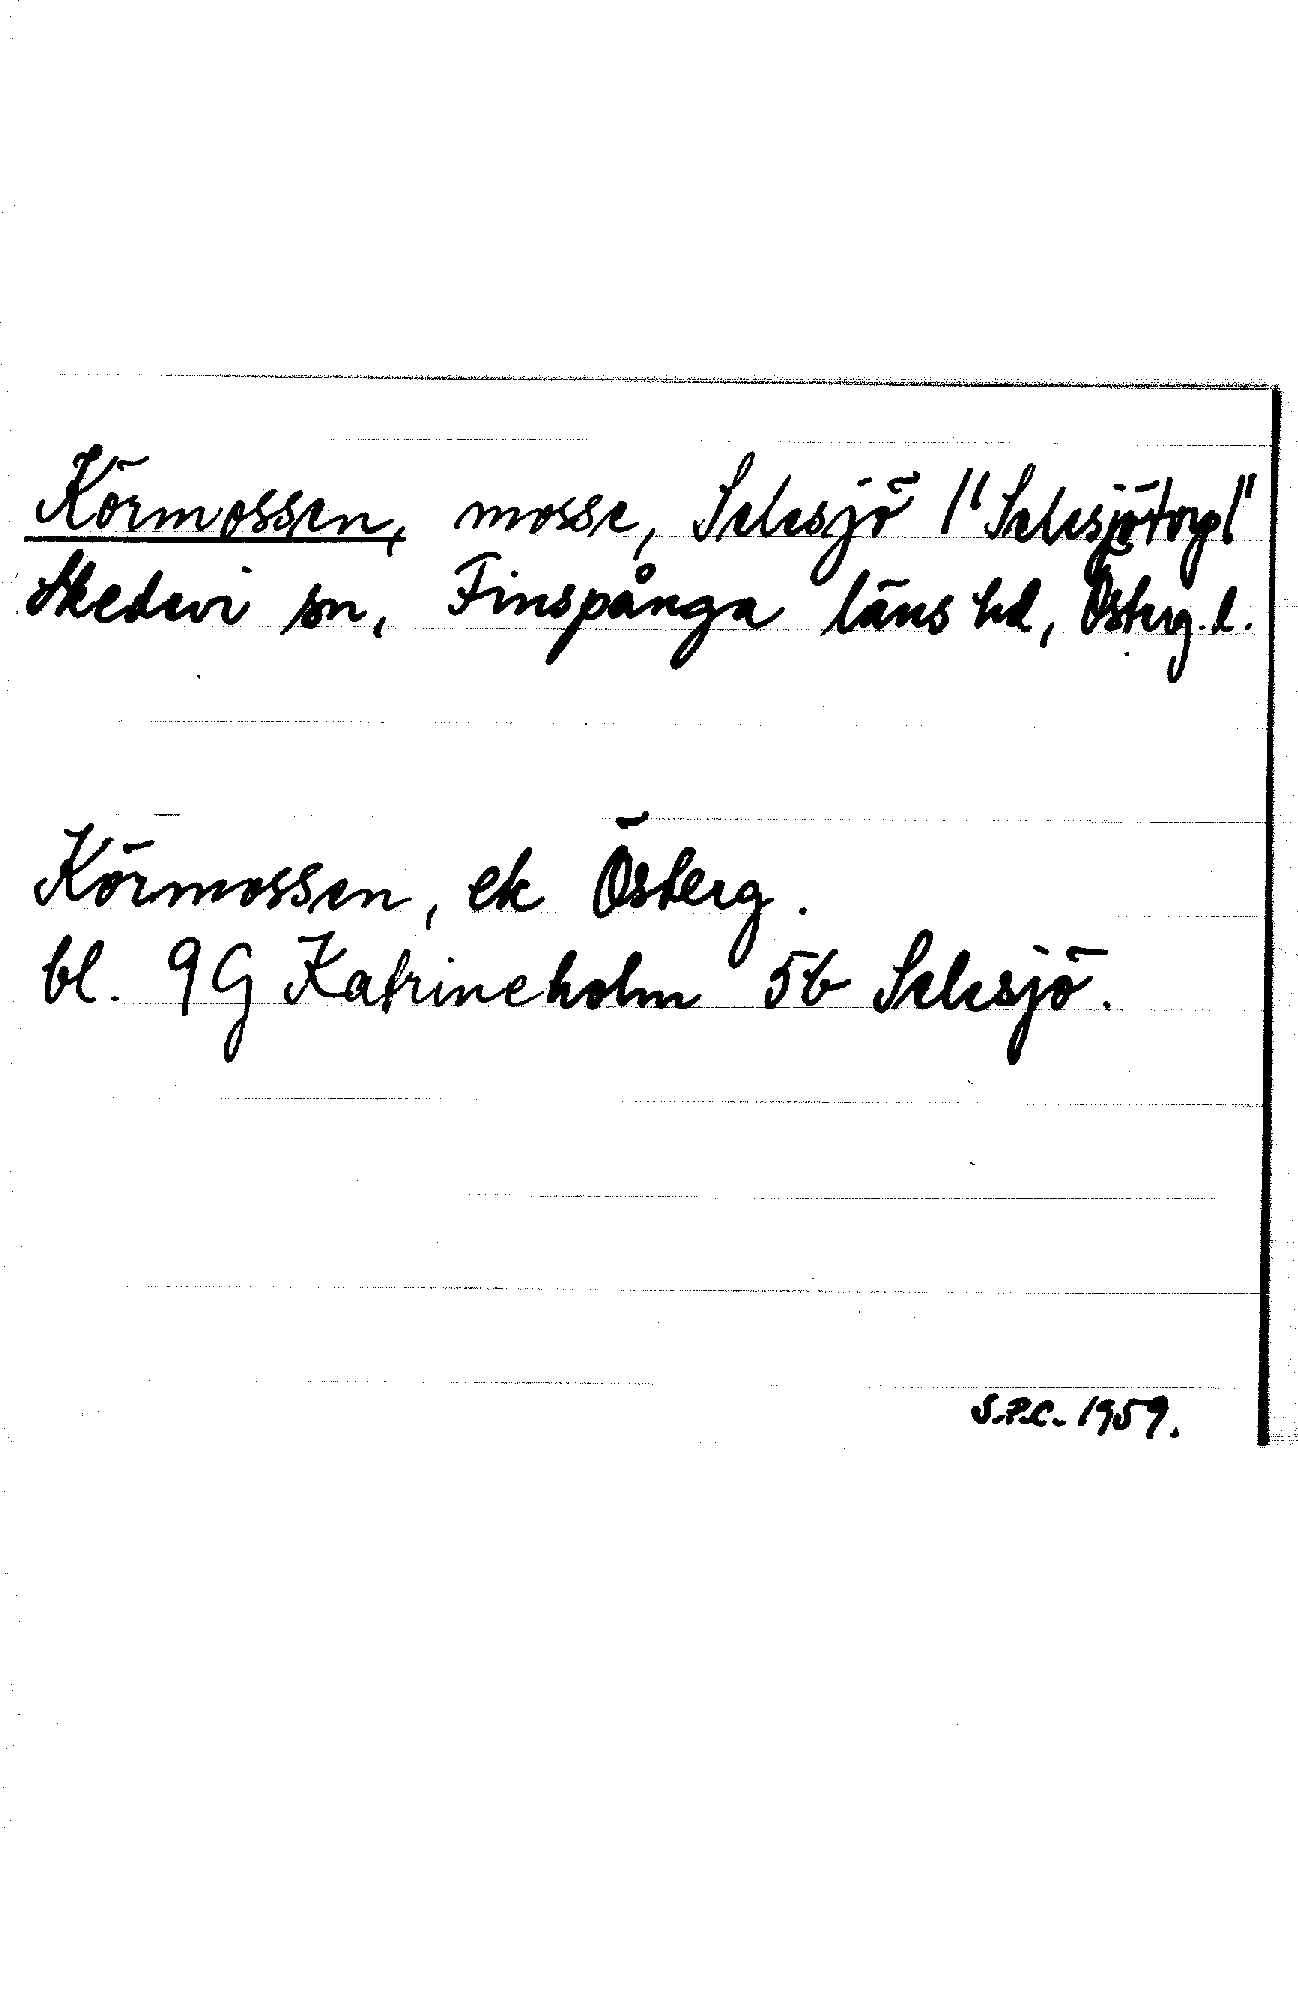 Körmossen, mosse, Selesjö /"Selesjötorp/"
Skedevi sn, Finspånga läns hd, Österg. l.
Körmossen, ek Österg.
bl. 9G Katrineholm 5b Selesjö.
S.P.C. 1959.